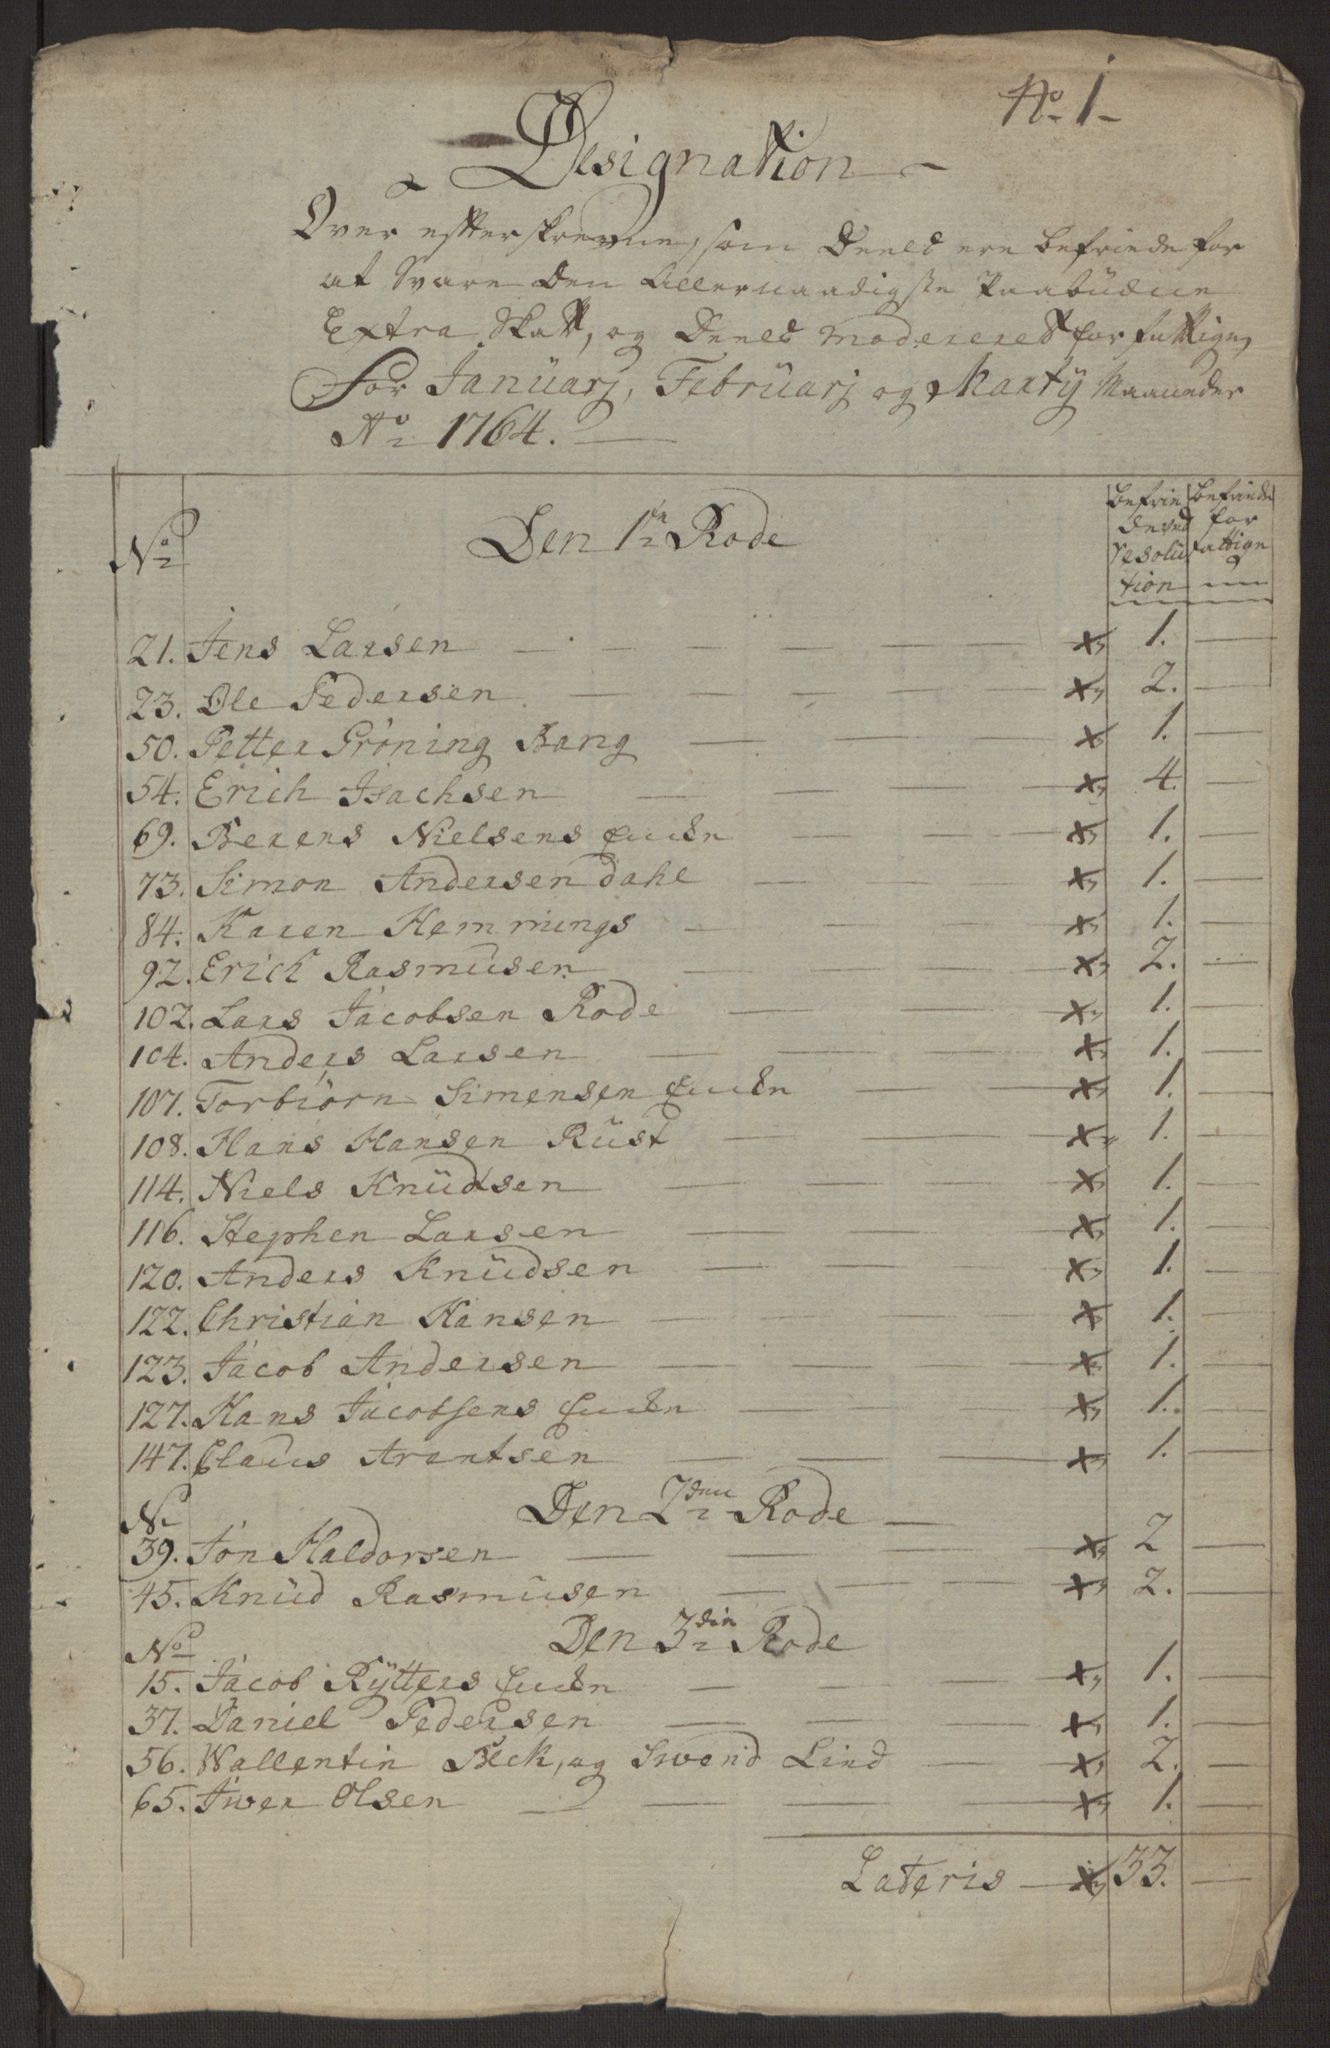 No 1
Designation
Over efterskrevne, som Deels ere befriede for
at Svare den Allernaadigste Paabüdne
Extra Skatt, og Deels modereret for fattige,
For Januarj, Februarj og Marty Maaneder
Ao 1764.
No Den 1te Rode befriede ved Resolution befriede for fattige
21. Jens Larsen x 1.
23. Ole Pedersen x 2.
50. Petter Gröning Bang x 1.
54. Erich Isachsen x 4.
69. Berens Nielsens Encke x 1.
73. Simon Andersen Dahl x 1.
84. Karen Hemmings x 1.
92. Erich Rasmüsen x 2.
102. Lars Jacobsen Rode x 1.
104. Anders Larsen x 1.
107. Torbiörn Simensen Encke x 1.
108. Hans Hansen Rüst x 1.
114. Niels Knüdsen x 1.
116. Stephen Larsen x 1.
120. Anders Knüdsen x 1.
122. Christian Hansen x 1.
123. Jacob Andersen x 1.
127. Hans Jacobsens Encke x 1.
147. Claus Arentsen x 1.
No Den 2den Rode
39. Jon Haldorsen x 2
45. Knüd Rasmüsen x 2.
No Den 3die Rode
15. Jacob Rytters Encke x 1.
37. Daniel Pedersen x 1.
56. Wallentin Beck, og Swend Lind x 2.
65. Iwer Olsen x 1.
Lateris x 33.